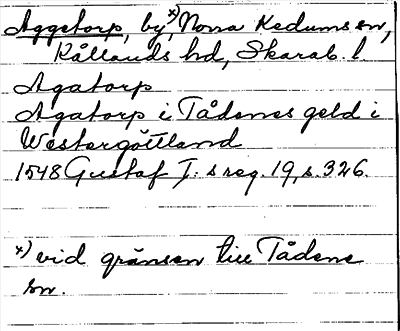 Aggetorp, by,x) Norra Kedums sn,
Kållands hd, Skarab. l.
Agatorp
Agatorp i Tådenes geld i
Westergöttland
1548 Gustaf I:s reg. 19, s. 326.
x) vid gränsen till Tådene
sn.